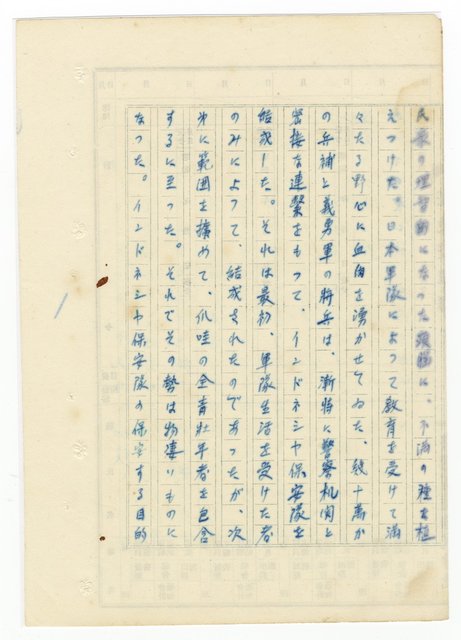 民衆の理智的になった頭脳に、不満の種を植
えつけた。日本軍隊によって教育を受けて満
々たる野心に血潮を湧かせてゐた、幾十萬か
の兵補と義勇軍の将兵は、漸時に警察机関と
密接な連繋をもって、インドネシヤ保安隊を
結成した。それは最初、軍隊生活を受けた者
のみによって、結成されたのであったが、次
第に範囲を擴めて、爪哇の全青壮年者を包含
するに至った。それでその勢は物凄いものに
なった。インドネシヤ保安隊の保安する目的